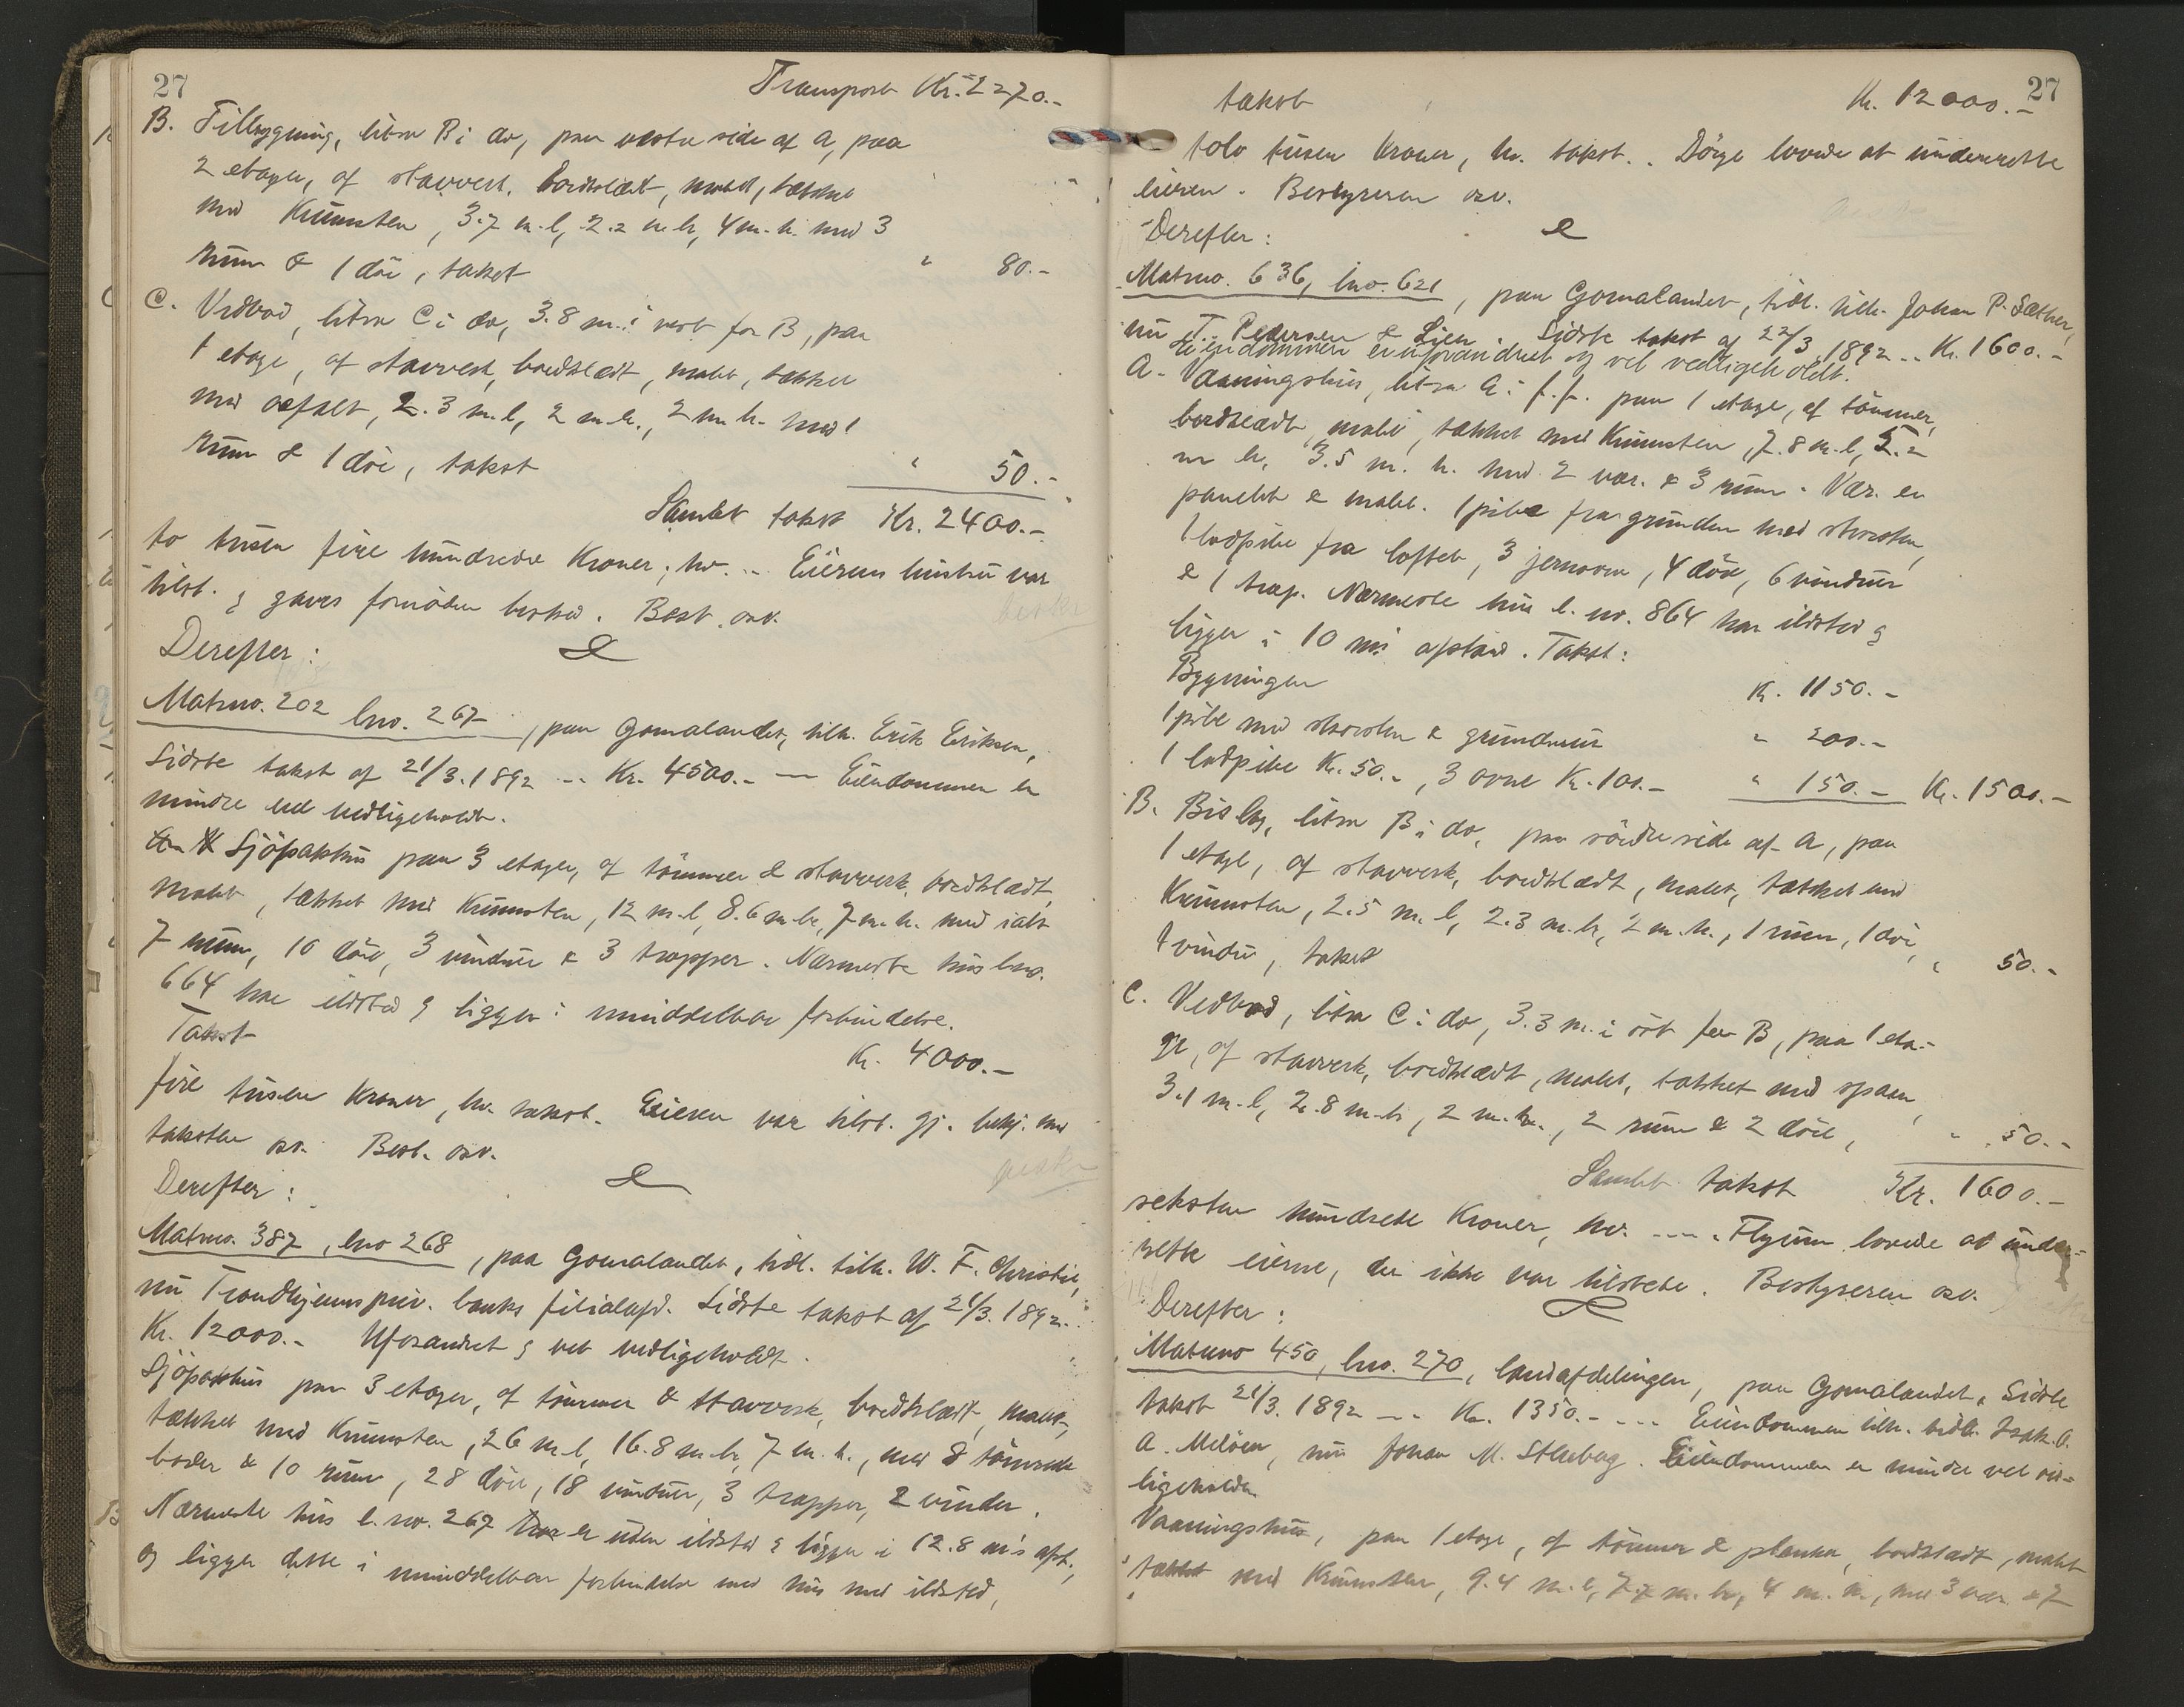 27
Transport Kr. 2270.-
B. Tilbygning, litra B i do, paa vestre side af A, paa
2 etager, af stavverk, bordklædt, malet, tækket
med Krumsten, 3.7 m.l, 2.2 m.b, 4 m.h. med 3
rum & 1 dör, takst " 80.-
C. Vedbod, litra C i do, 3.8 m. i vest for B, paa
1 etage, af stavverk, bordklædt, malet, tækket
med asfalt, 2.3 m.l, 2 m.b., 2 m.h. med 1
rum & 1 dör, takst " 50.-
Samlet takst Kr. 2400.-
to tusen fire hundrede Kroner, hv. .. Eierens hustru var
tilst. og gaves fornöden besked. Best. osv.
Derefter:
Matrno. 202 bno. 267, paa Gomalandet, tilh. Erik Eriksen,
Sidste takst af 21/3.1892 ... Kr. 4500.- — Eiendommen er
mindre vel vedligeholdt.
Sjöpakhus paa 3 etager, af tömmer & stavverk, bordklædt,
malet, tækket med Krumsten, 12 m.l, 8.6 m.b, 7 m.h. med ialt
7 rum, 10 döre, 3 vinduer & 3 trapper. Nærmeste hus bno.
664 har ildsted og ligger i umiddelbar forbindelse.
Takst Kr. 4000.-
fire tusen Kroner, hv. takst. Eieren var tilst. gj. bekj. med
taksten osv. Best. osv.
Derefter:
Matrno. 387, bno 268, paa Gomalandet, tidl. tilh. W. F. Christie,
nu Trondhjems priv. banks filialafd. Sidste takst af 21/3. 1892..
Kr. 12000.- Uforandret og vel vedligeholdt.
Sjöpakhus paa 3 etager, af tömmer & stavverk, bordklædt, malet,
tækket med Krumsten, 26 m.l, 16.8 m.b, 7 m.h., med 8 tömrede
boder & 10 rum, 28 döre, 18 vinduer, 3 trapper, 2 vinder.
Nærmeste hus b.no. 267 er uden ildsted og ligger i 12.8 m's afst.,
og ligger dette i umiddelbar forbindelse med hus med ildsted,
27
takst Kr. 12000.-
tolv tusen Kroner, hv. takst. . Dörge lovede at underrette
eieren. Bestyreren osv.
Derefter:
Matrno. 636, bno. 621, paa Gomalandet, tidl. tilh. Johan P. Sæther,
nu T. Pedersen & Lien. Sidste takst af 22/3 1892 .. Kr. 1600.-
Eiendommen er uforandret og vel vedligeholdt.
A. Vaaningshus, litra A i f.f. paa 1 etage, af tömmer,
bordklædt, malet, tækket med Krumsten, 7.8 m.l, 5.2
m b, 3.5 m. h. med 2 vær. & 3 rum. Vær. er
panelet & malet. 1 pibe fra grunden med skorsten,
1 ladpibe fra loftet, 3 jernovne, 4 döre, 6 vinduer
& 1 trap. Nærmeste hus b. no. 864 har ildsted og
ligger i 10 m's afstand. Takst:
Bygningen Kr. 1150.-
1 pibe med skorsten & grundmur " 200.-
1 ladpibe Kr. 50.-, 3 ovne Kr. 100.- " 150.- Kr. 1500.-
B. Bislag, litra B i do, paa söndre side af A, paa
1 etage, af stavverk, bordklædt, malet, tækket med
Krumsten, 2.5 m. l, 2.3 m.b, 2 m.h., 1 rum, 1 dör,
1 vindu, takst " 50.-
C. Vedbod, litra C i do, 3.3 m. i öst for B, paa 1 eta-
ge, af stavverk, bordklædt, malet, tækket med spaan,
3.1 m.l, 2.8 m.b, 2 m.h., 2 rum & 2 döre, " 50.-
Samlet takst Kr. 1600.-
seksten hundrede Kroner, hv. .... Flygum lovede at under-
rette eierne, der ikke var tilstede. Bestyreren osv.
Derefter:
Matrno 450, bno. 270, landafdelingen, paa Gomalandet, Sidste
takst 21/3. 1892 ... Kr. 1350.- ... Eiendommen tilh. tidl. Isak. O.
A. Melöen, nu Johan M. . Eiendommen er mindre vel ved-
ligeholdt.
Vaaningshus, paa 1 etage, af tömmer & planker, bordklædt, malet
tækket med Krumsten, 9.4 m.l, 7.7 m.b, 4 m.h, med 3 vær. & 7